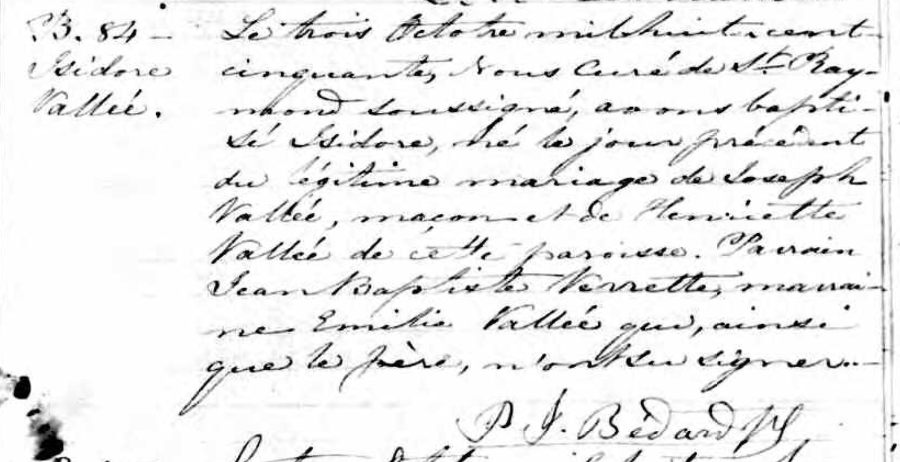 B. 84 –
Isidore
Vallée.
Le trois Octobre mil huit cent
cinquante, Nous Curé de St. Ray-
mond soussigné, avons bapti-
sé Isidore, né le jour précédent
du légitime mariage de Joseph
Vallée, maçon et de Henriette
Vallée de cette paroisse. Parrain
Jean Baptiste Verrette, marrai-
ne Emilie Vallée qui, ainsi
que le père, n'ont su signer..–
P. J. Bédard